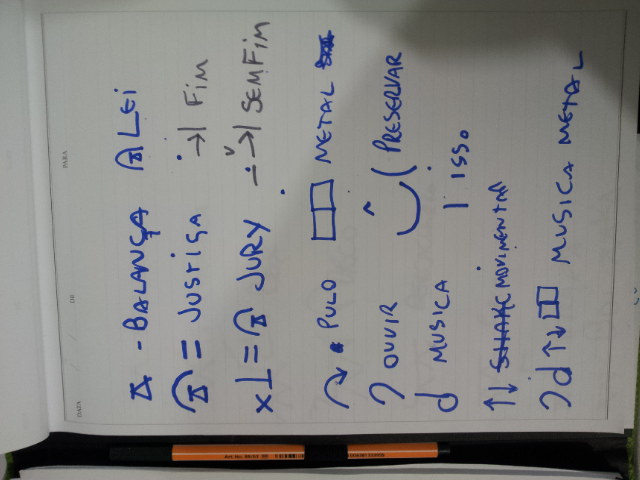 DATA / / PARA
- BALANÇA LEI
= JUSTIÇA FIM
x = JURY SEMFIM
PULO METAL
OUVIR PRESERVAR
MUSICA ISSO
↑↓ SHAKE MOVIMENTAR
↑↓ MUSICA METAL